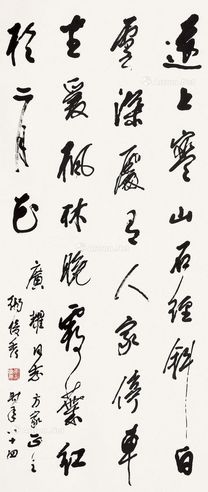 遠上寒山石徑斜白
雲深處有人家停車
坐愛楓林晚霜葉紅
於二月花
廣耀同志方家正之
柳倩書 時年八十四